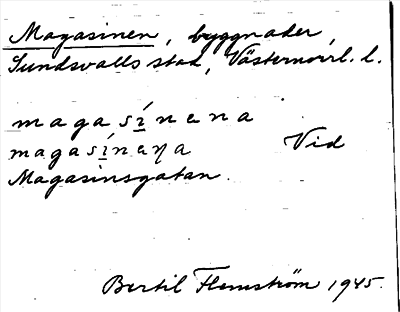 Magasinen, byggnader,
Sundsvalls stad, Västernorrl. l.
magasí̱nena
magasí̱neɳa Vid
Magasinsgatan.
Bertil Flemström 1945.